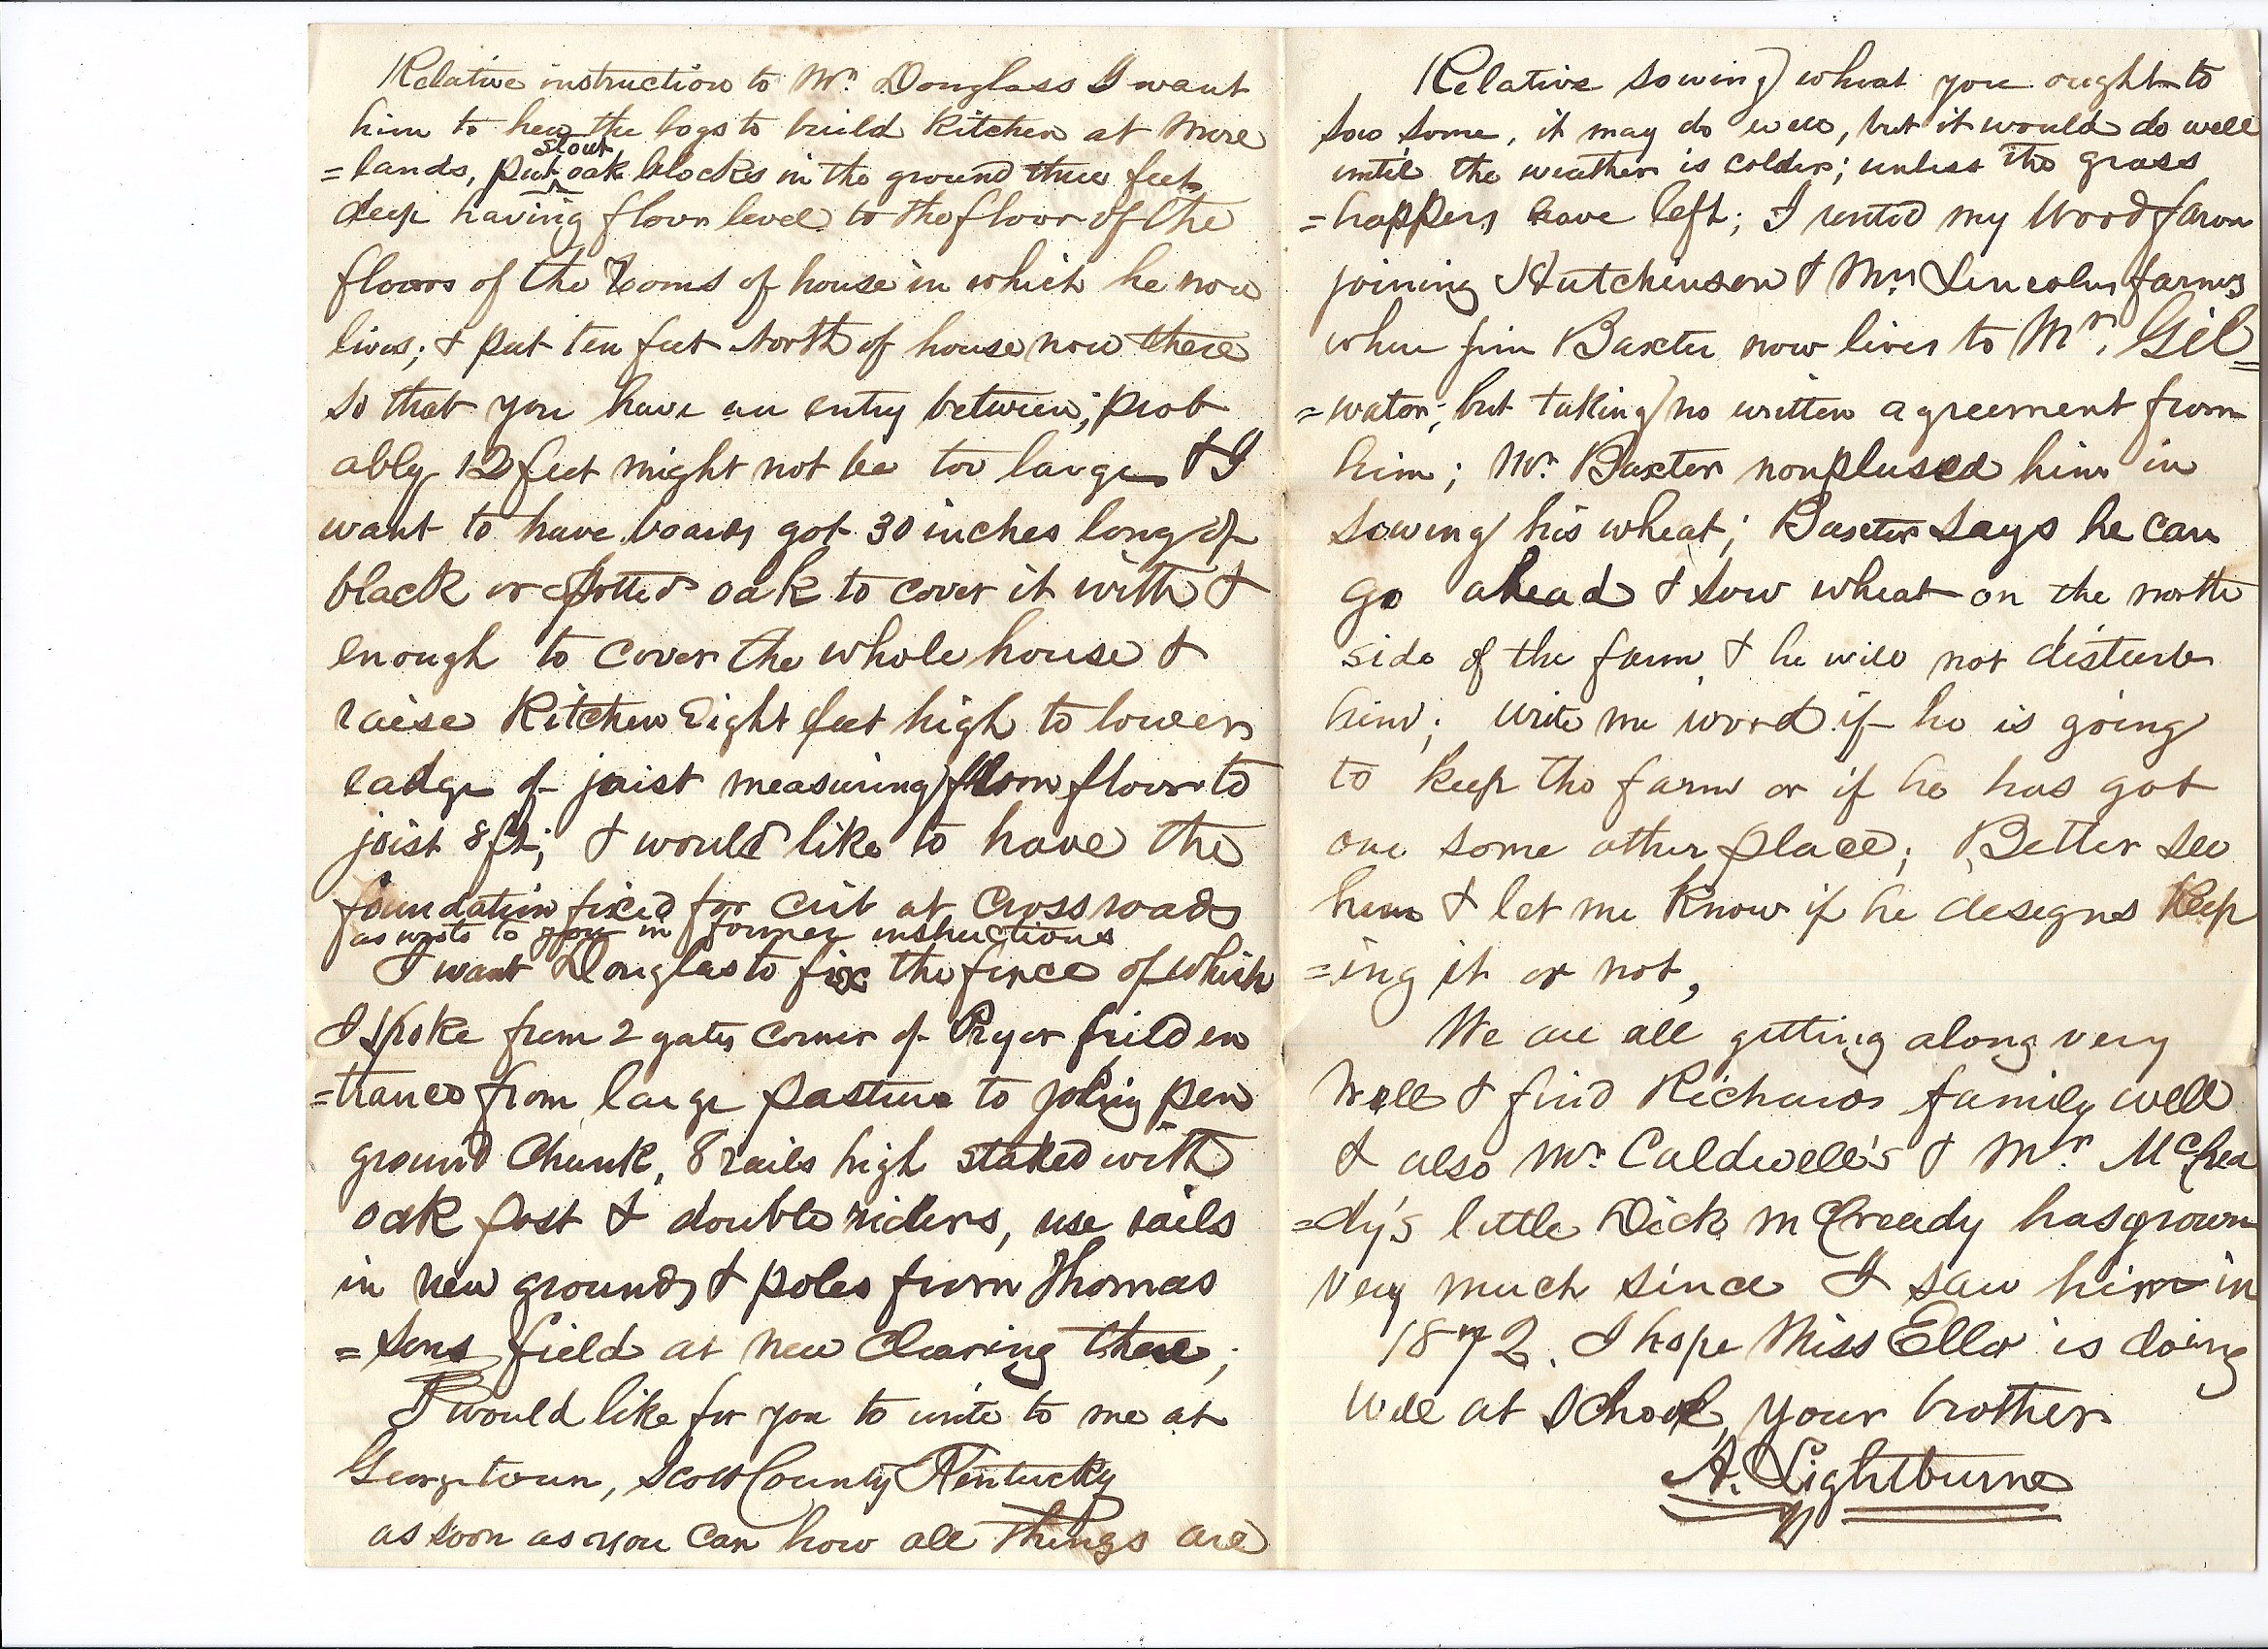 Relative instruction to Mr. Douglass I want
him to hew the logs to build kitchen at More
=lands, put stout oak blocks in the ground three feet
deep having floor level to the floor of the
floors of the rooms of house in which he now
lives; & put ten feet North of house now there
so that you have an entry between; prob
ably 12 feet might not be too large & I
want to have boards got 30 inches long of
black or spotted oak to cover it with &
enough to cover the whole house &
raise Kitchen Eight feet high to lower
eadge of joist measuring from floor to
joist 8ft; I would like to have the
foundation fixed for crib at Cross roads
as wrote to you in former instructions
I want Douglas to fix the fence of which
I spoke from 2 gates corner of Pryor feild en
=trance from large pasture to pen
ground Chunk, 8 rails high staked with
oak post & double riders, use rails
in new grounds & poles from Thomas
=sons field at new Clearing there;
I would like for you to write to me at
Georgetown, Scott County Kentucky
as soon as you can how all things are
Relative sowing wheat you ought to
sow some, it may do well, but it would do well
until the weather is colder; unless the grass
=hoppers have left; I rented my Wood farm
joining Hutchinson & Mrs Lincolns farms
where Jim Baxter now lives to Mr. Gil
=water; but taking no written agreement from
him; Mr. Baxter nonplused him in
sowing his wheat; Baxter says he can
go ahead & sow wheat on the north
side of the farm & he will not disturb
him; write me word if he is going
to keep the farm or if he has got
one some other place; Better see
him & let me know if he designs Keep
=ing it or not,
We are all getting along very
well & find Richards family well
& also Mr. Caldwell's & Mr. McCrea
=dy's little Dick McCready has grown
very much since I saw him in
1872. I hope Miss Ella is doing
well at school, your brother
A. Lightburne